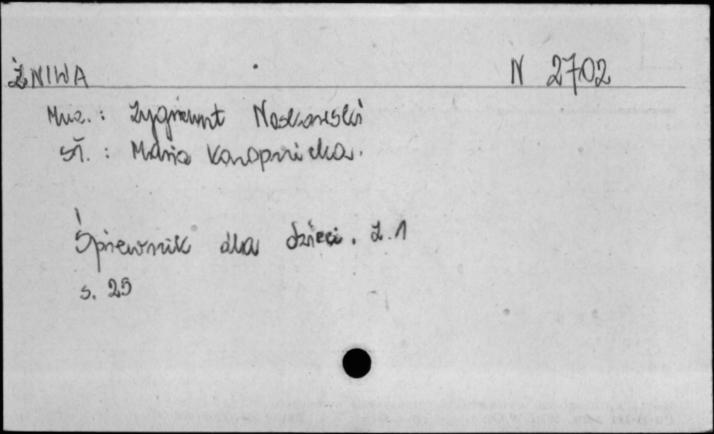 ŻNIWA N 2702
Muz. : Zygmunt Noskowski
sł. : Maria Konopnicka.
Śpiewnik dla dzieci. Z. 1
s. 25